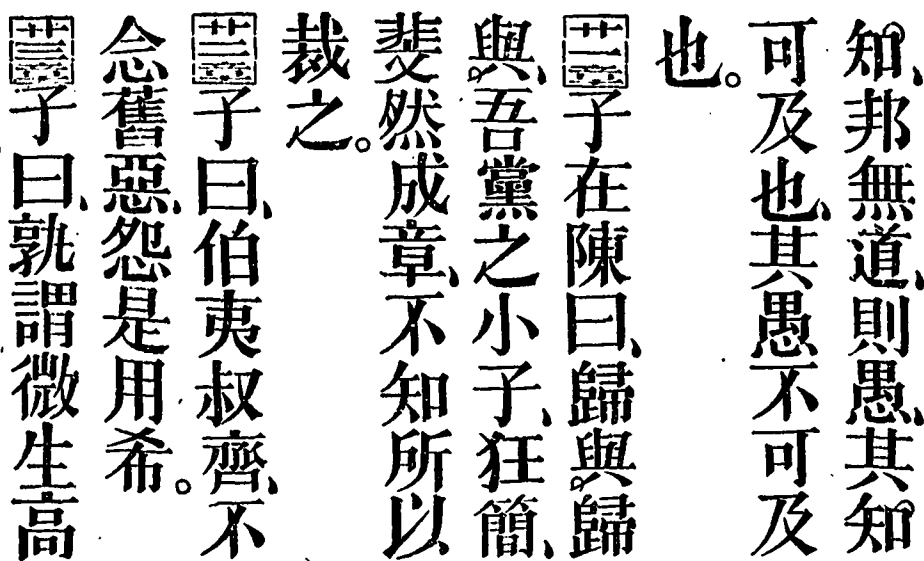 知、邦無道、則愚、其知
可及也、其愚不可及
也。
廿一子在陳曰、歸與、歸
與、吾黨之小子、狂簡、
斐然成章、不知所以
裁之。
廿二子曰、伯夷叔齊、不
念舊惡、怨是用希。
廿三子曰、孰謂微生高